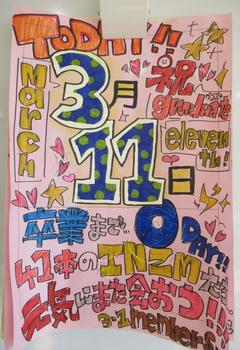 TODAY!!
March
3月
祝
graduate
eleven
th!
11日
卒業まで...
0 DAY!!
41本のINZMたち
元気にまた会おう!!
3-1 members